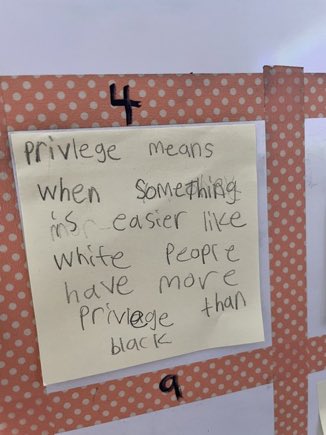 4
privlege means
when something
is easier like
white people
have more
privlege than
black
9